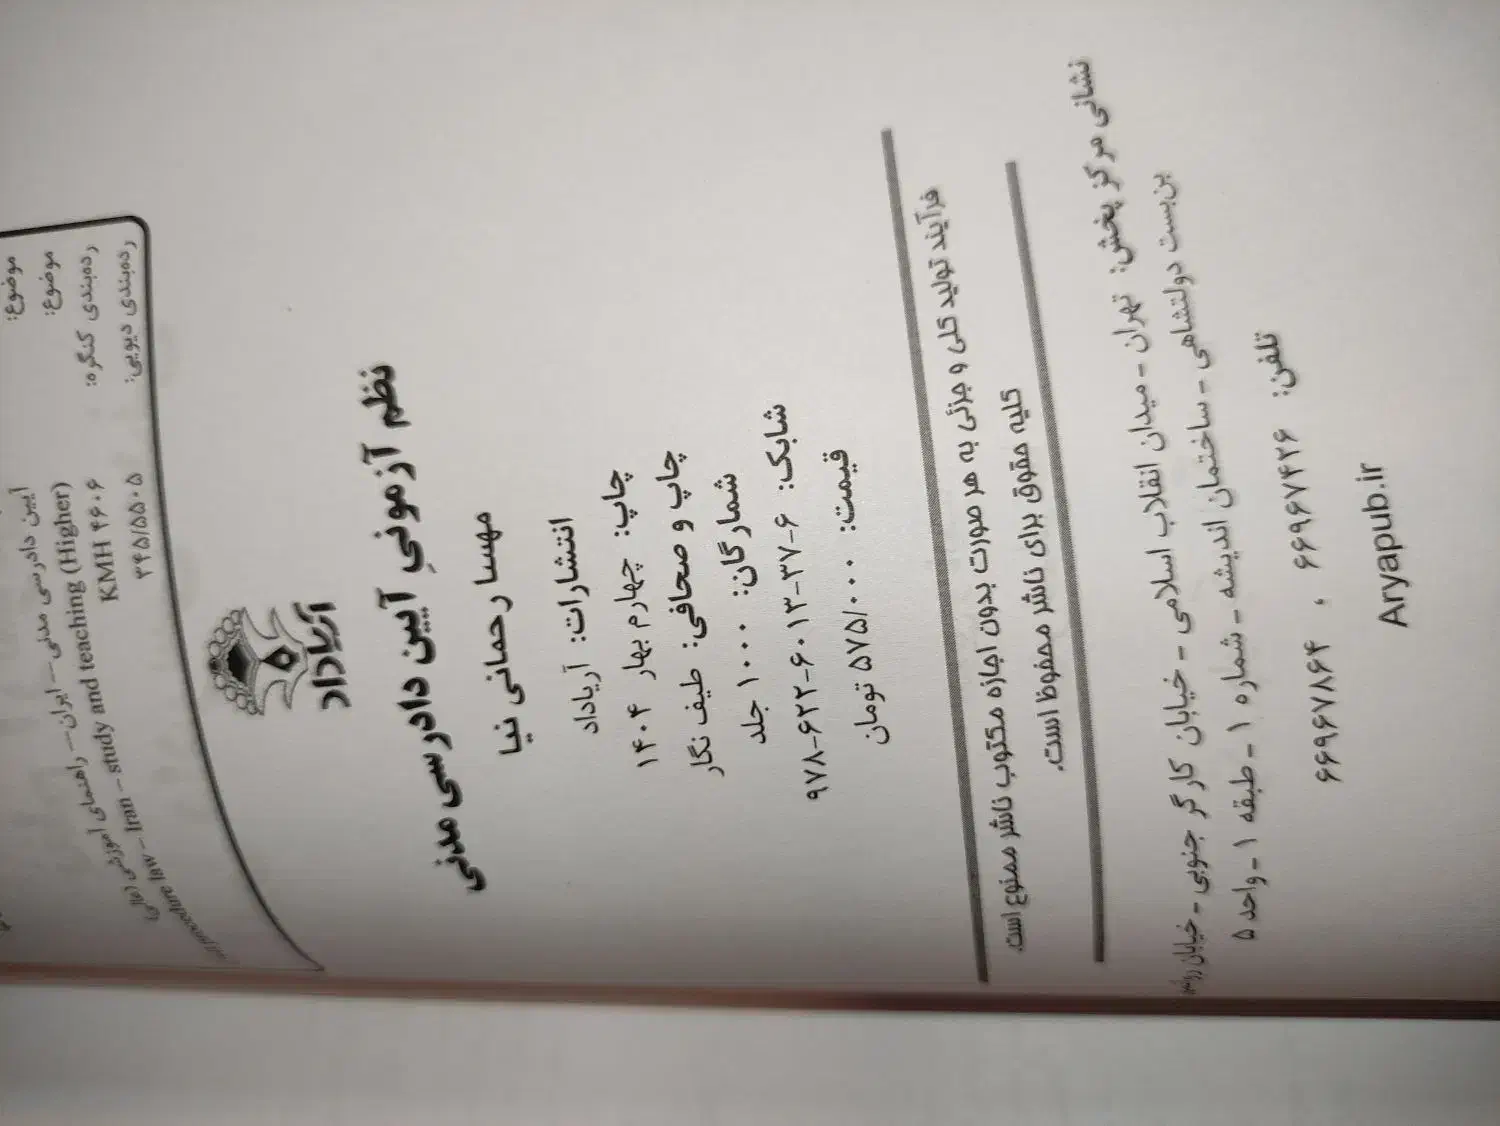 موضوع:
آیین دادرسی مدنی -- ایران -- راهنمای آموزشی (عالی)
موضوع:
procedure law – Iran – study and teaching (Higher)
رده‌بندی کنگره: KMH ۴۶۰۶
رده‌بندی دیویی: ۳۴۵/۵۵۰۵
آریاداد
نظم آزمونیِ آیین دادرسی مدنی
مهسا رحمانی نیا
انتشارات: آریاداد
چاپ: چهارم بهار ۱۴۰۴
چاپ و صحافی: طیف نگار
شمارگان: ۱۰۰۰ جلد
شابک: ۶-۳۷-۶۰۱۳-۶۲۲-۹۷۸
قیمت: ۵۷۵/۰۰۰ تومان
فرآیند تولید کلی و جزئی به هر صورت بدون اجازه مکتوب ناشر ممنوع است.
کلیه حقوق برای ناشر محفوظ است.
نشانی مرکز پخش: تهران - میدان انقلاب اسلامی - خیابان کارگر جنوبی - خیابان
بن‌بست دولتشاهی - ساختمان اندیشه - شماره ۱ - طبقه ۱ - واحد ۵
تلفن: ۶۶۹۶۷۴۲۶ ، ۶۶۹۶۷۸۶۴
Aryapub.ir